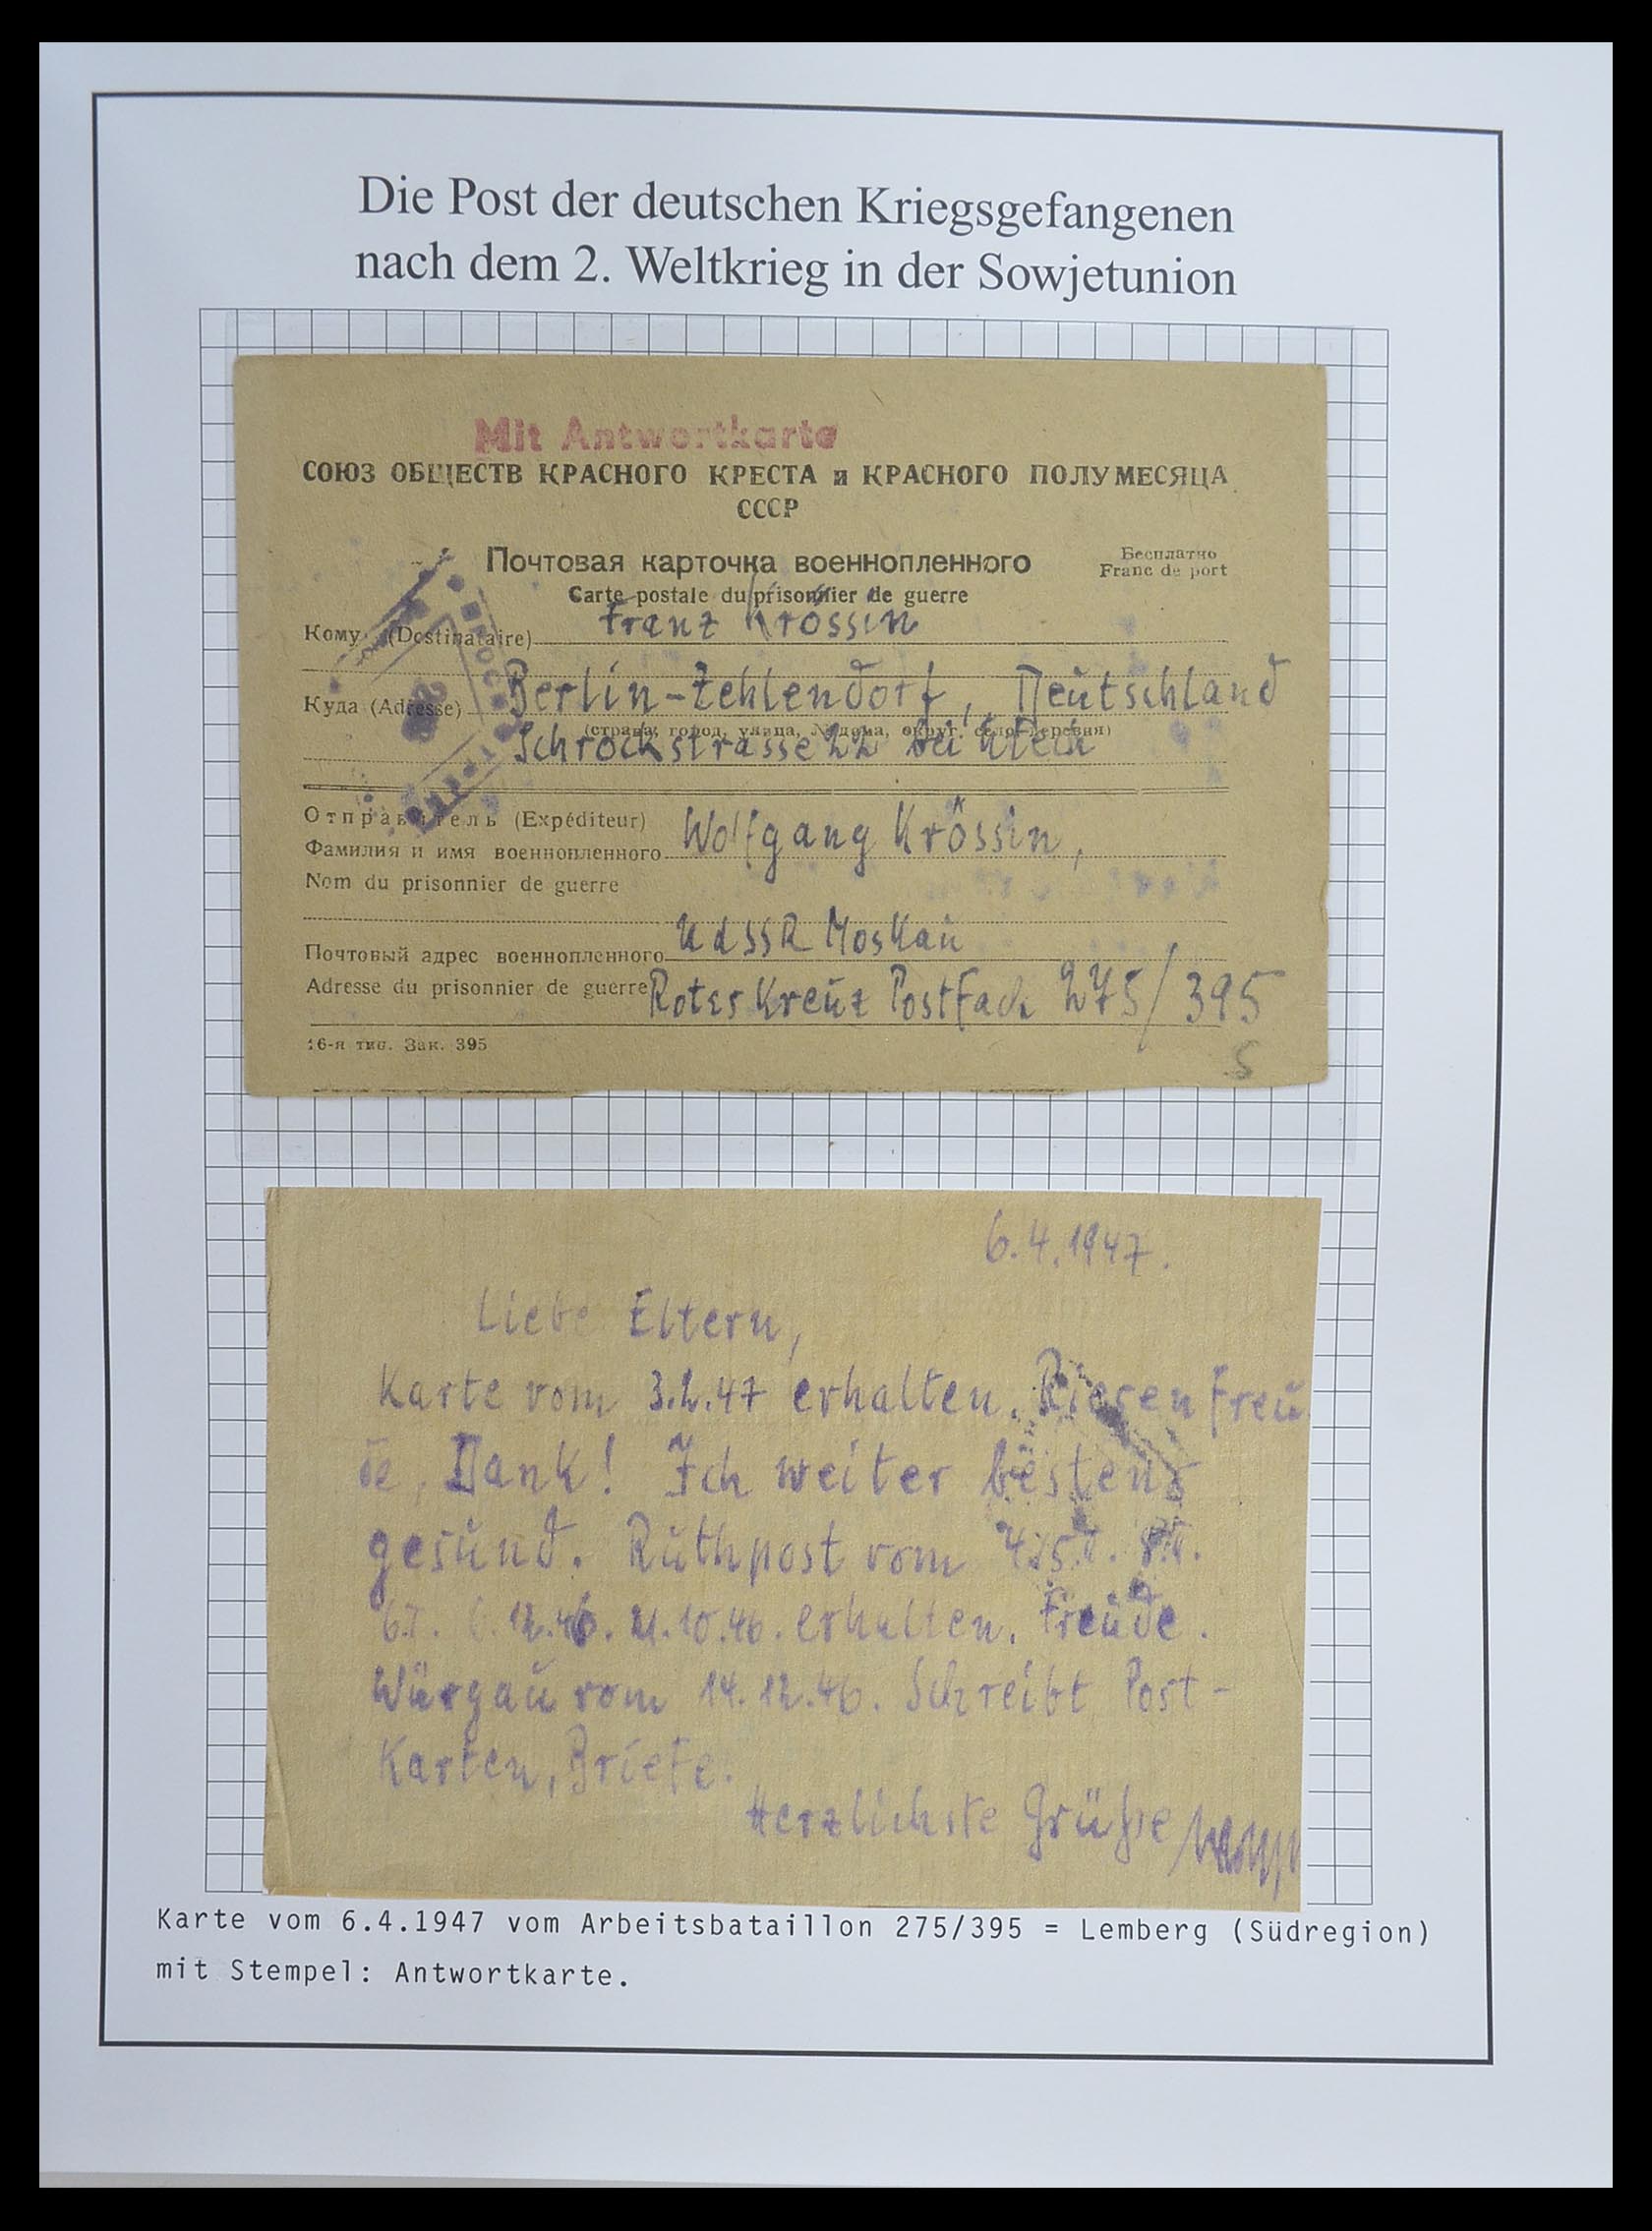 Die Post der deutschen Kriegsgefangenen
nach dem 2. Weltkrieg in der Sowjetunion
Mit Antwortkarte
СОЮЗ ОБЩЕСТВ КРАСНОГО КРЕСТА и КРАСНОГО ПОЛУМЕСЯЦА
СССР
Почтовая карточка военнопленного
Бесплатно
Franc de port
Carte postale du prisonnier de guerre
Кому (Destinataire) Franz Krössin
Куда (Adresse) Berlin-Zehlendorf, Deutschland
(страна, город, улица, № дома, округ, село, деревня)
Schrockstrasse 22 bei Klein
Отправитель (Expéditeur)
Фамилия и имя военнопленного Wolfgang Krössin,
Nom du prisonnier de guerre
Почтовый адрес военнопленного UdSSR Moskau
Adresse du prisonnier de guerre Rotes Kreuz Postfach 275/395
16-я тип. Зак. 395
5
6.4.1947.
Liebe Eltern,
Karte vom 3.2.47 erhalten. Riesenfreu
de, Dank! Ich weiter bestens
gesund. Ruthpost vom
12.46. 21.10.46. erhalten. Freude.
Würgau vom 14.12.46. Schreibt Post-
Karten, Briefe.
Herzlichste Grüße
Karte vom 6.4.1947 vom Arbeitsbataillon 275/395 = Lemberg (Südregion)
mit Stempel: Antwortkarte.